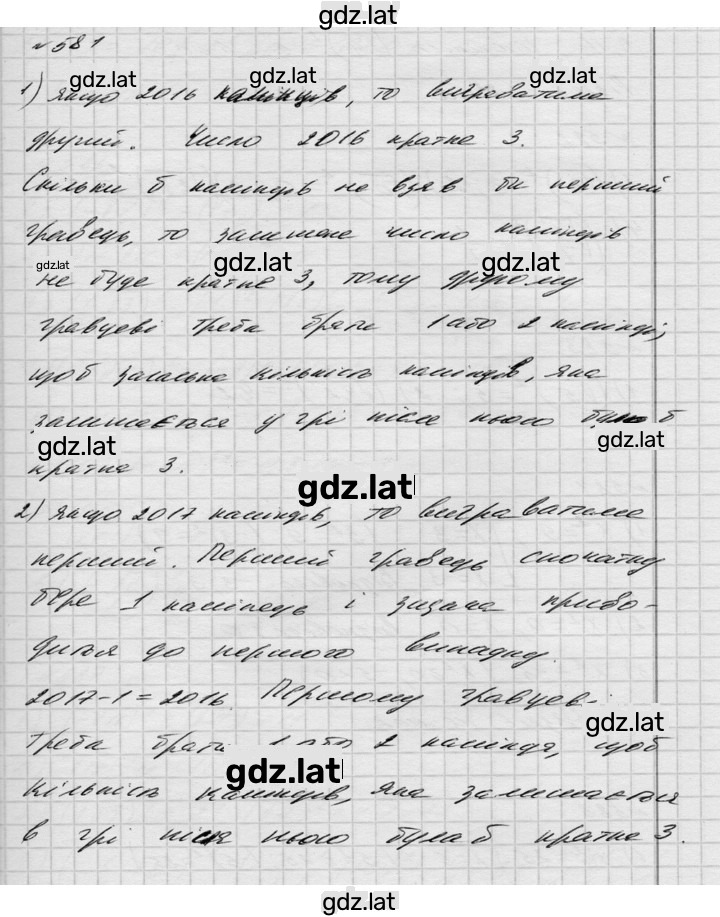 gdz.lat
№581
gdz.lat gdz.lat
1) якщо 2016 камінців, то виграватиме
другий. Число 2016 кратне 3.
Скільки б камінців не взяв би перший
гравець, то залишене число камінців
gdz.lat gdz.lat gdz.lat
не буде кратне 3, тому другому
гравцеві треба брати 1 або 2 камінці,
щоб загальна кількість камінців, яка
залишається у грі після нього було б
gdz.lat gdz.lat
кратне 3.
gdz.lat
2) якщо 2017 камінців, то виграватиме
перший. Перший гравець спочатку
бере 1 камінець і задача приво-
диться до першого випадку.
2017-1=2016. Першому гравцеві
gdz.lat
треба брати 1 або 2 камінця, щоб
gdz.lat
кількість камінців, яка залишається
в грі після нього була б кратне 3.
gdz.lat